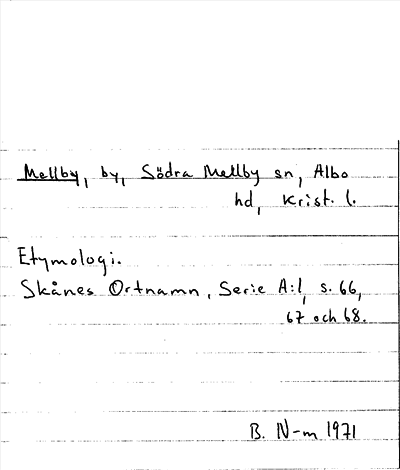 Mellby, by, Södra Mellby sn, Albo
hd, Krist. l.
Etymologi.
Skånes Ortnamn, Serie A:1, s. 66,
67 och 68.
B. N-m 1971